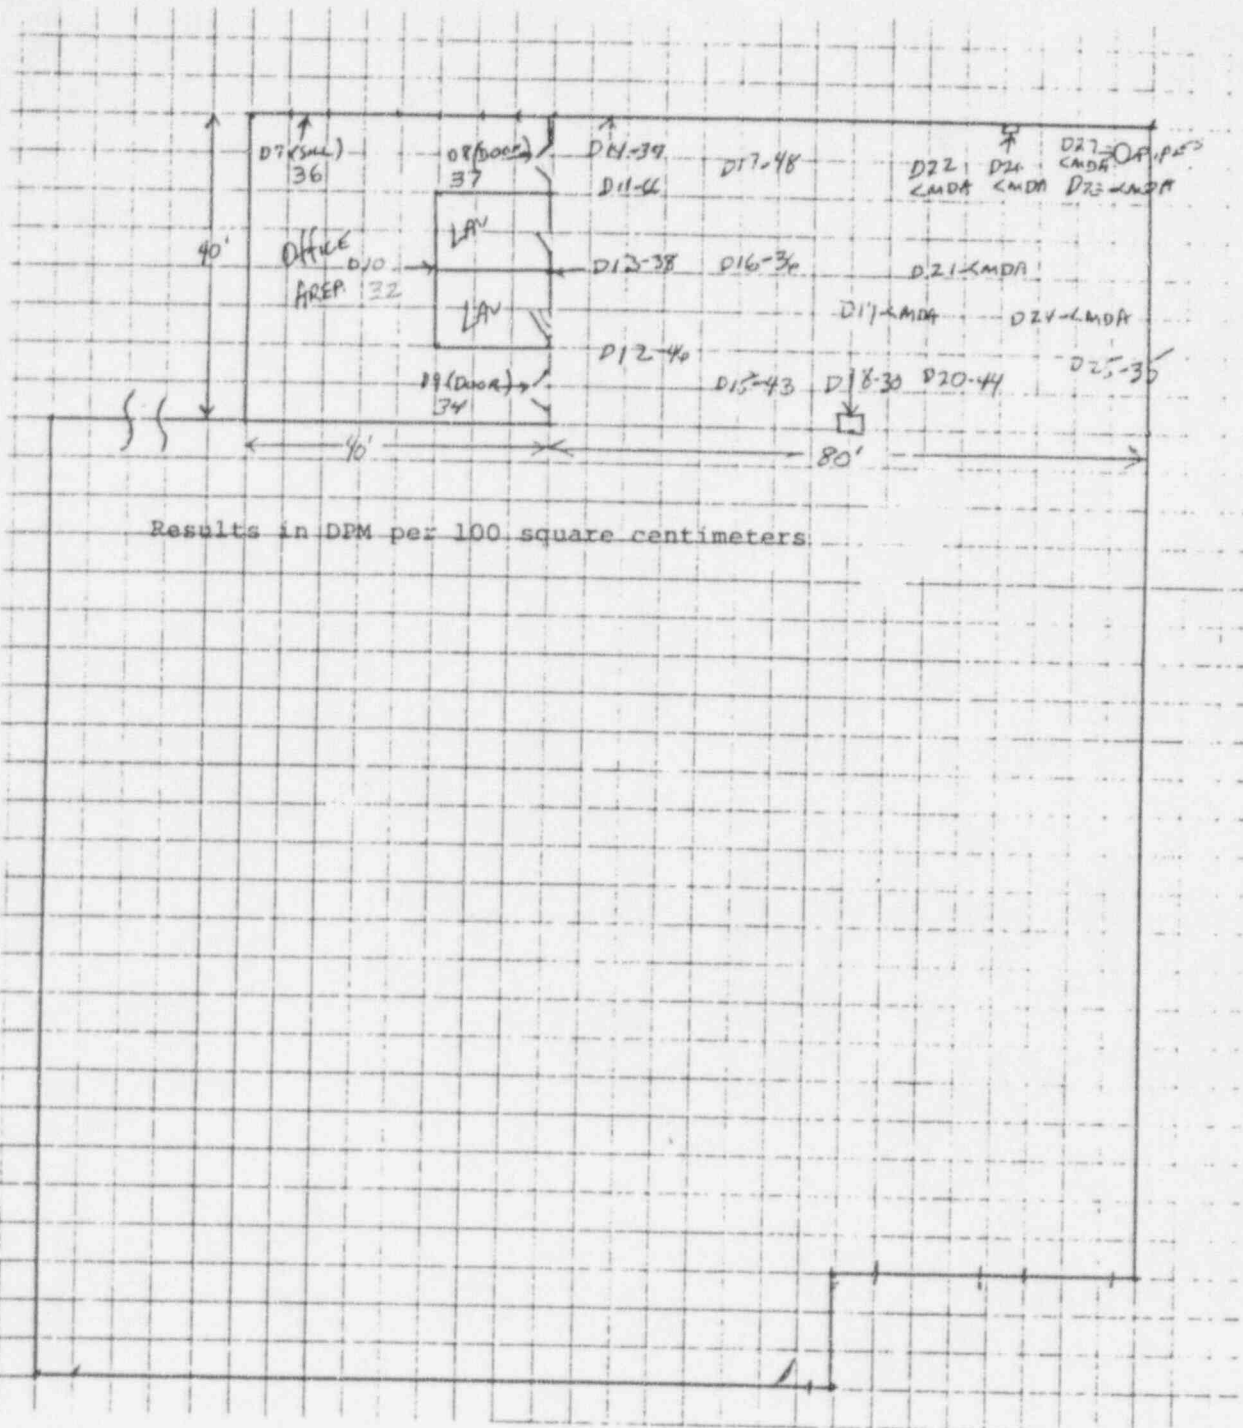 D7 (Sill)
36
D8 (Door)
37
D14-39
D11-66
D17-48
D22
<MDA
D26
<MDA
D27
<MDA
Pipes
D23-<MDA
40'
Office
Area
D10
32
LAV
LAV
D13-38
D16-36
D21-<MDA
D19-<MDA
D24-<MDA
D12-46
D9 (Door)
34
D15-43
D18-30
D20-44
D25-35
40'
80'
Results in DPM per 100 square centimeters